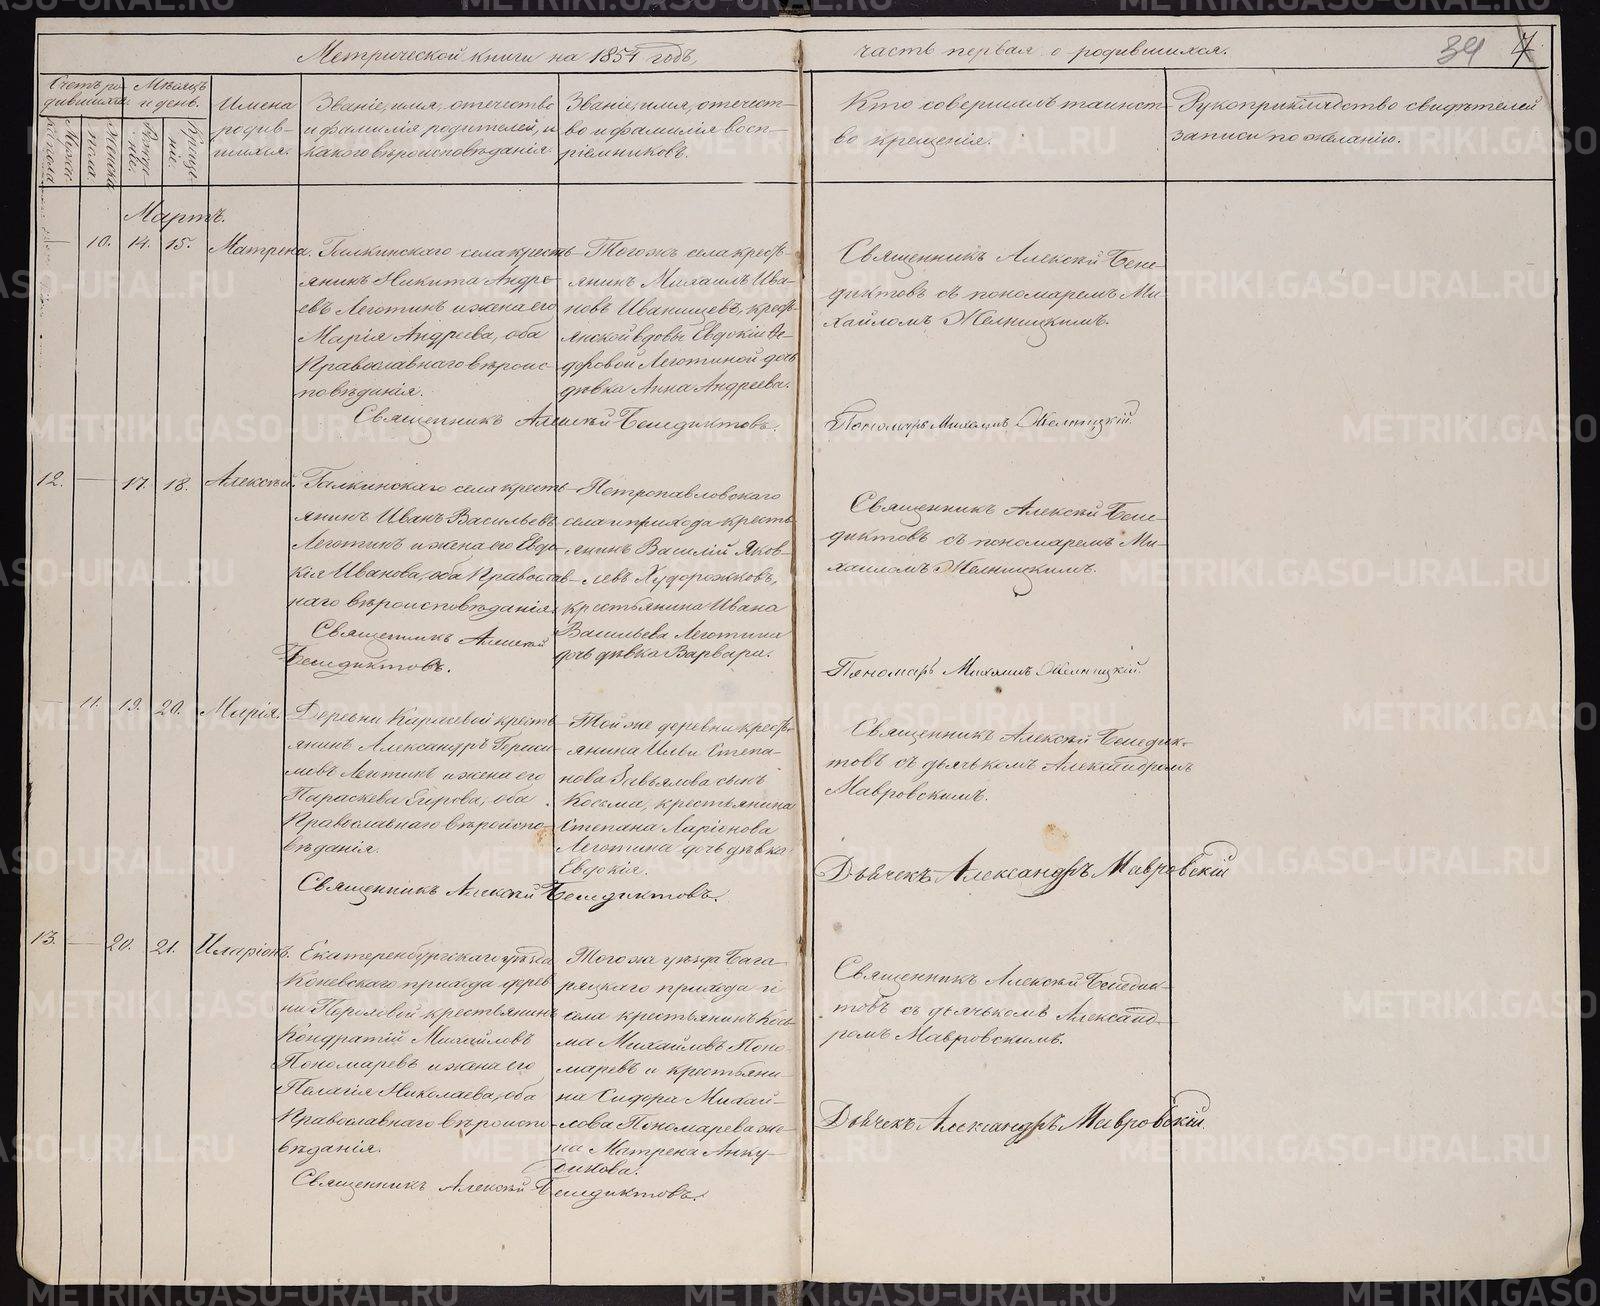 Метрической книги на 1851 годъ,
часть первая о родившихся.
34 7
Счетъ ро-
дившихся.
Мѣсяцъ
и день.
Мужеска пола.
Женска пола.
Рожде-
нія.
Креще-
нія.
Имена
родив-
шихся.
Званіе, имя, отечество
и фамилія родителей, и
какого вѣроисповѣданія.
Званіе, имя, отечест-
во и фамилія восп-
ріемниковъ.
Кто совершалъ таинст-
во крещенія.
Рукоприкладство свидѣтелей
записи по желанію.
Мартъ.
— 10. 14. 15. Матрена.
Галкинскаго села кресть-
янинъ Никита Андре-
евъ Леготинъ и жена его
Марія Андреева, оба
Православнаго вѣроис-
повѣданія.
Священникъ Алексѣй Бенедиктовъ.
Тогожъ села кресть-
янинъ Михаилъ Ива-
новъ Иванищевъ, кресть-
янской вдовы Евдокіи Ѳе-
доровой Леготиной дочь
дѣвка Анна Андреева.
Священникъ Алексѣй Бене-
диктовъ съ пономаремъ Ми-
хайломъ Желницкимъ.
Пономарь Михаилъ Желницкій.
12. — 17. 18. Алексѣй.
Галкинскаго села кресть-
янинъ Иванъ Васильевъ
Леготинъ и жена его Евдо-
кія Иванова, оба Православ-
наго вѣроисповѣданія.
Священникъ Алексѣй
Бенедиктовъ.
Петропавловскаго
села и прихода кресть-
янинъ Василій Яков-
левъ Худорожковъ,
крестьянина Ивана
Васильева Леготина
дочь дѣвка Варвара.
Священникъ Алексѣй Бене-
диктовъ съ пономаремъ Ми-
хаиломъ Желницкимъ.
Пономарь Михаилъ Желницкій.
— 11. 19. 20. Марія.
Деревни Карасевой кресть-
янинъ Александръ Гераси-
мовъ Леготинъ и жена его
Параскева Егорова, оба
Православнаго вѣроиспо-
вѣданія.
Священникъ Алексѣй Бенедиктовъ.
Той же деревни кресть-
янина Ильи Степа-
нова Завьялова сынъ
Косьма, крестьянина
Степана Ларіонова
Леготина дочь дѣвка
Евдокія.
Священникъ Алексѣй Бенедик-
товъ съ дьячькомъ Александромъ
Мавровскимъ.
Дьячекъ Александръ Мавровскій
13. — 20. 21. Иларіонъ.
Екатеренбургскаго уѣзда
Коневскаго прихода дерев-
ни крестьянинъ
Кондратій Михайловъ
Пономаревъ и жена его
Пелагія Николаева, оба
Православнаго вѣроиспо-
вѣданія.
Священникъ Алексѣй Бенедиктовъ.
Тогоже уѣзда Бага-
ряцкаго прихода и
села крестьянинъ Кось-
ма Михайловъ Поно-
маревъ и крестьяни-
на Сидора Михай-
лова Пономарева же-
на Матрена Анку-
динова.
Священникъ Алексѣй Бенедик-
товъ съ дьячькомъ Александ-
ромъ Мавровскимъ.
Дьячекъ Александръ Мавровскій.
METRIKI.GASO-URAL.RU